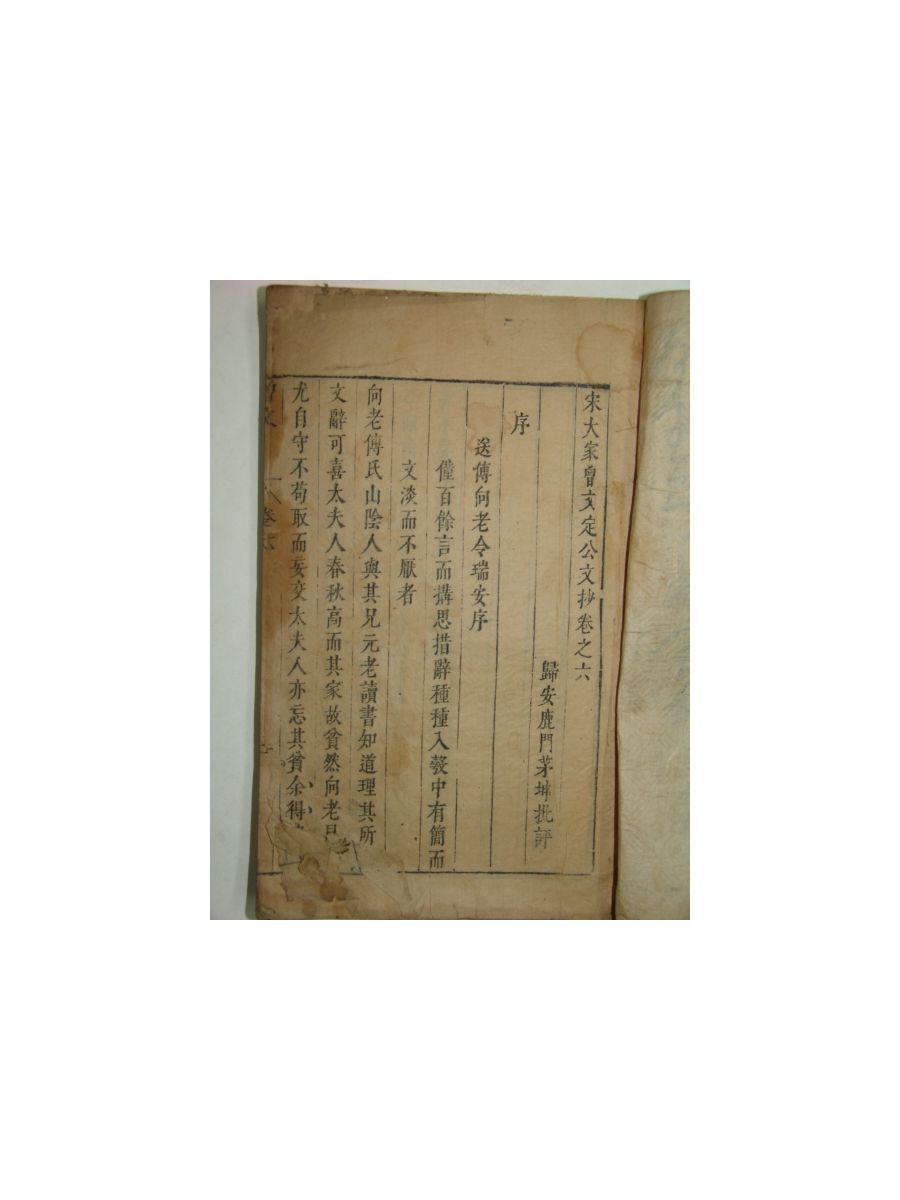 宋大家曾文定公文抄卷之六
歸安鹿門茅坤批評
序
送傅向老令瑞安序
僅百餘言而搆思措辭種種入彀中有簡而
文淡而不厭者
向老傅氏山陰人與其兄元老讀書知道理其所
文辭可喜太夫人春秋高而其家故貧然向老昆
尤自守不苟取而妄交太夫人亦忘其貧余得
曾文 卷六